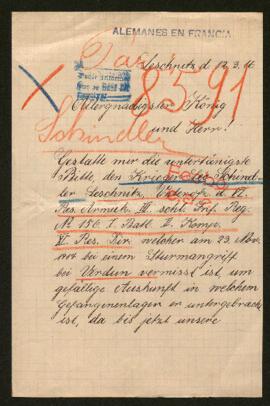 ALEMANES EN FRANCIA
Leschnetz d 12. 3. 16
Allergnädigster König
und Herr!
8591
Schindler
Gestatte mir die untertänigste
Bitte, den Krieger
Leschnetz,
Res. Armeek. Inf. Reg.
No 156. I. Batl. 2. Komp.
Res. Div. welcher am 23. Nov.
bei einem Sturmangriff
bei Verdun vermisst ist, um
gefällige Auskunft in welchem
Gefangenenlager er untergebracht
ist, da bis jetzt unsere